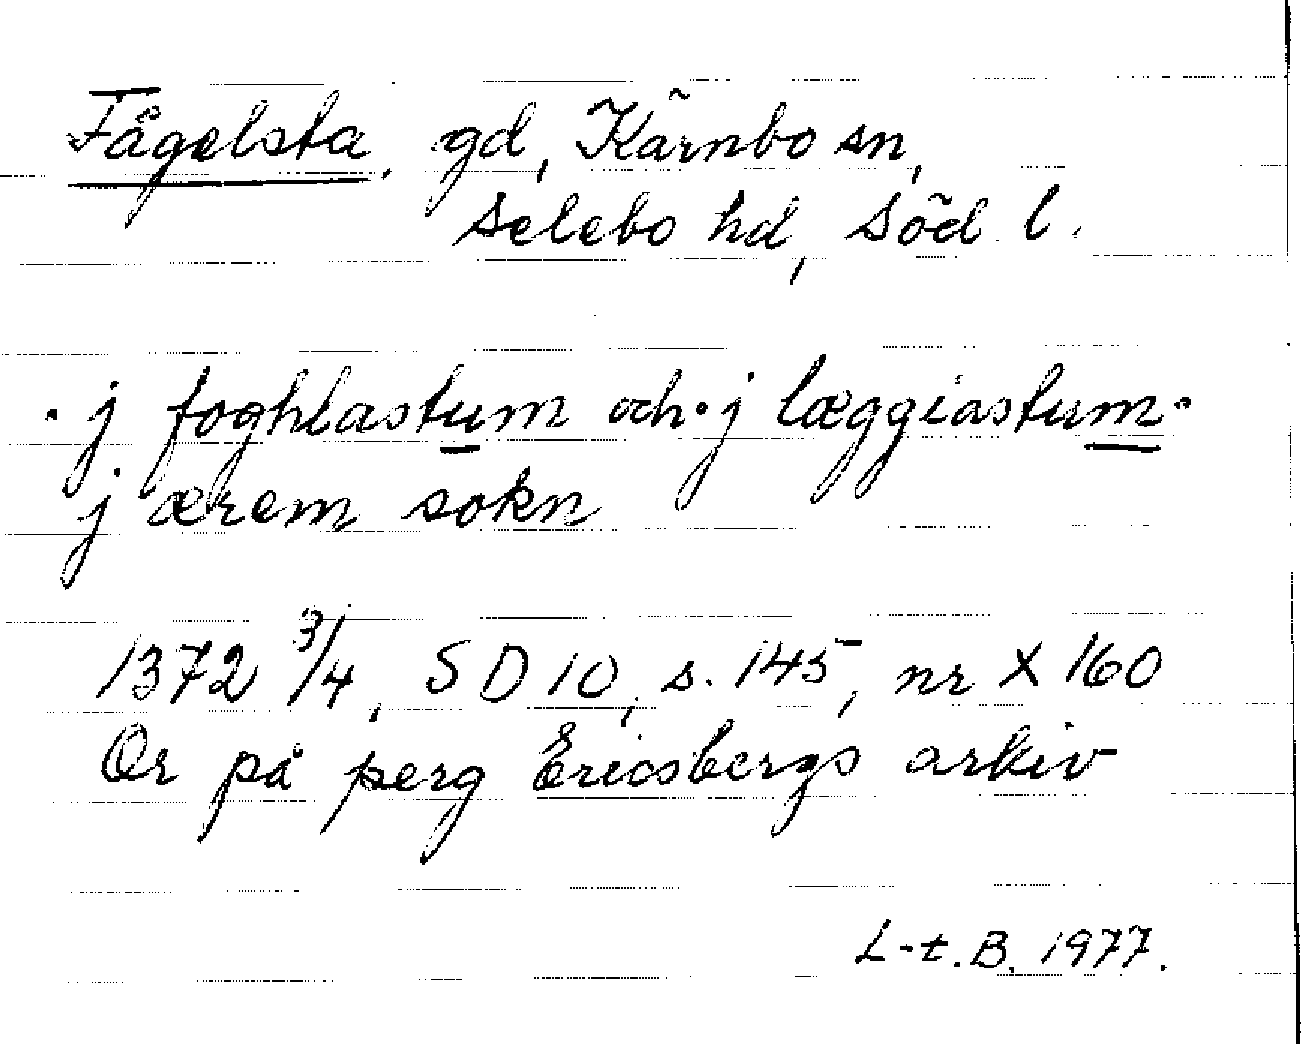 Fågelsta, gd, Kärnbo sn,
Selebo hd, Söd l.
· j foghlastum och · j læggiastum ·
j ærem sokn
1372 3/4, SD 10, s. 145, nr X 160
Or på perg Ericsbergs arkiv
L-t. B. 1977.